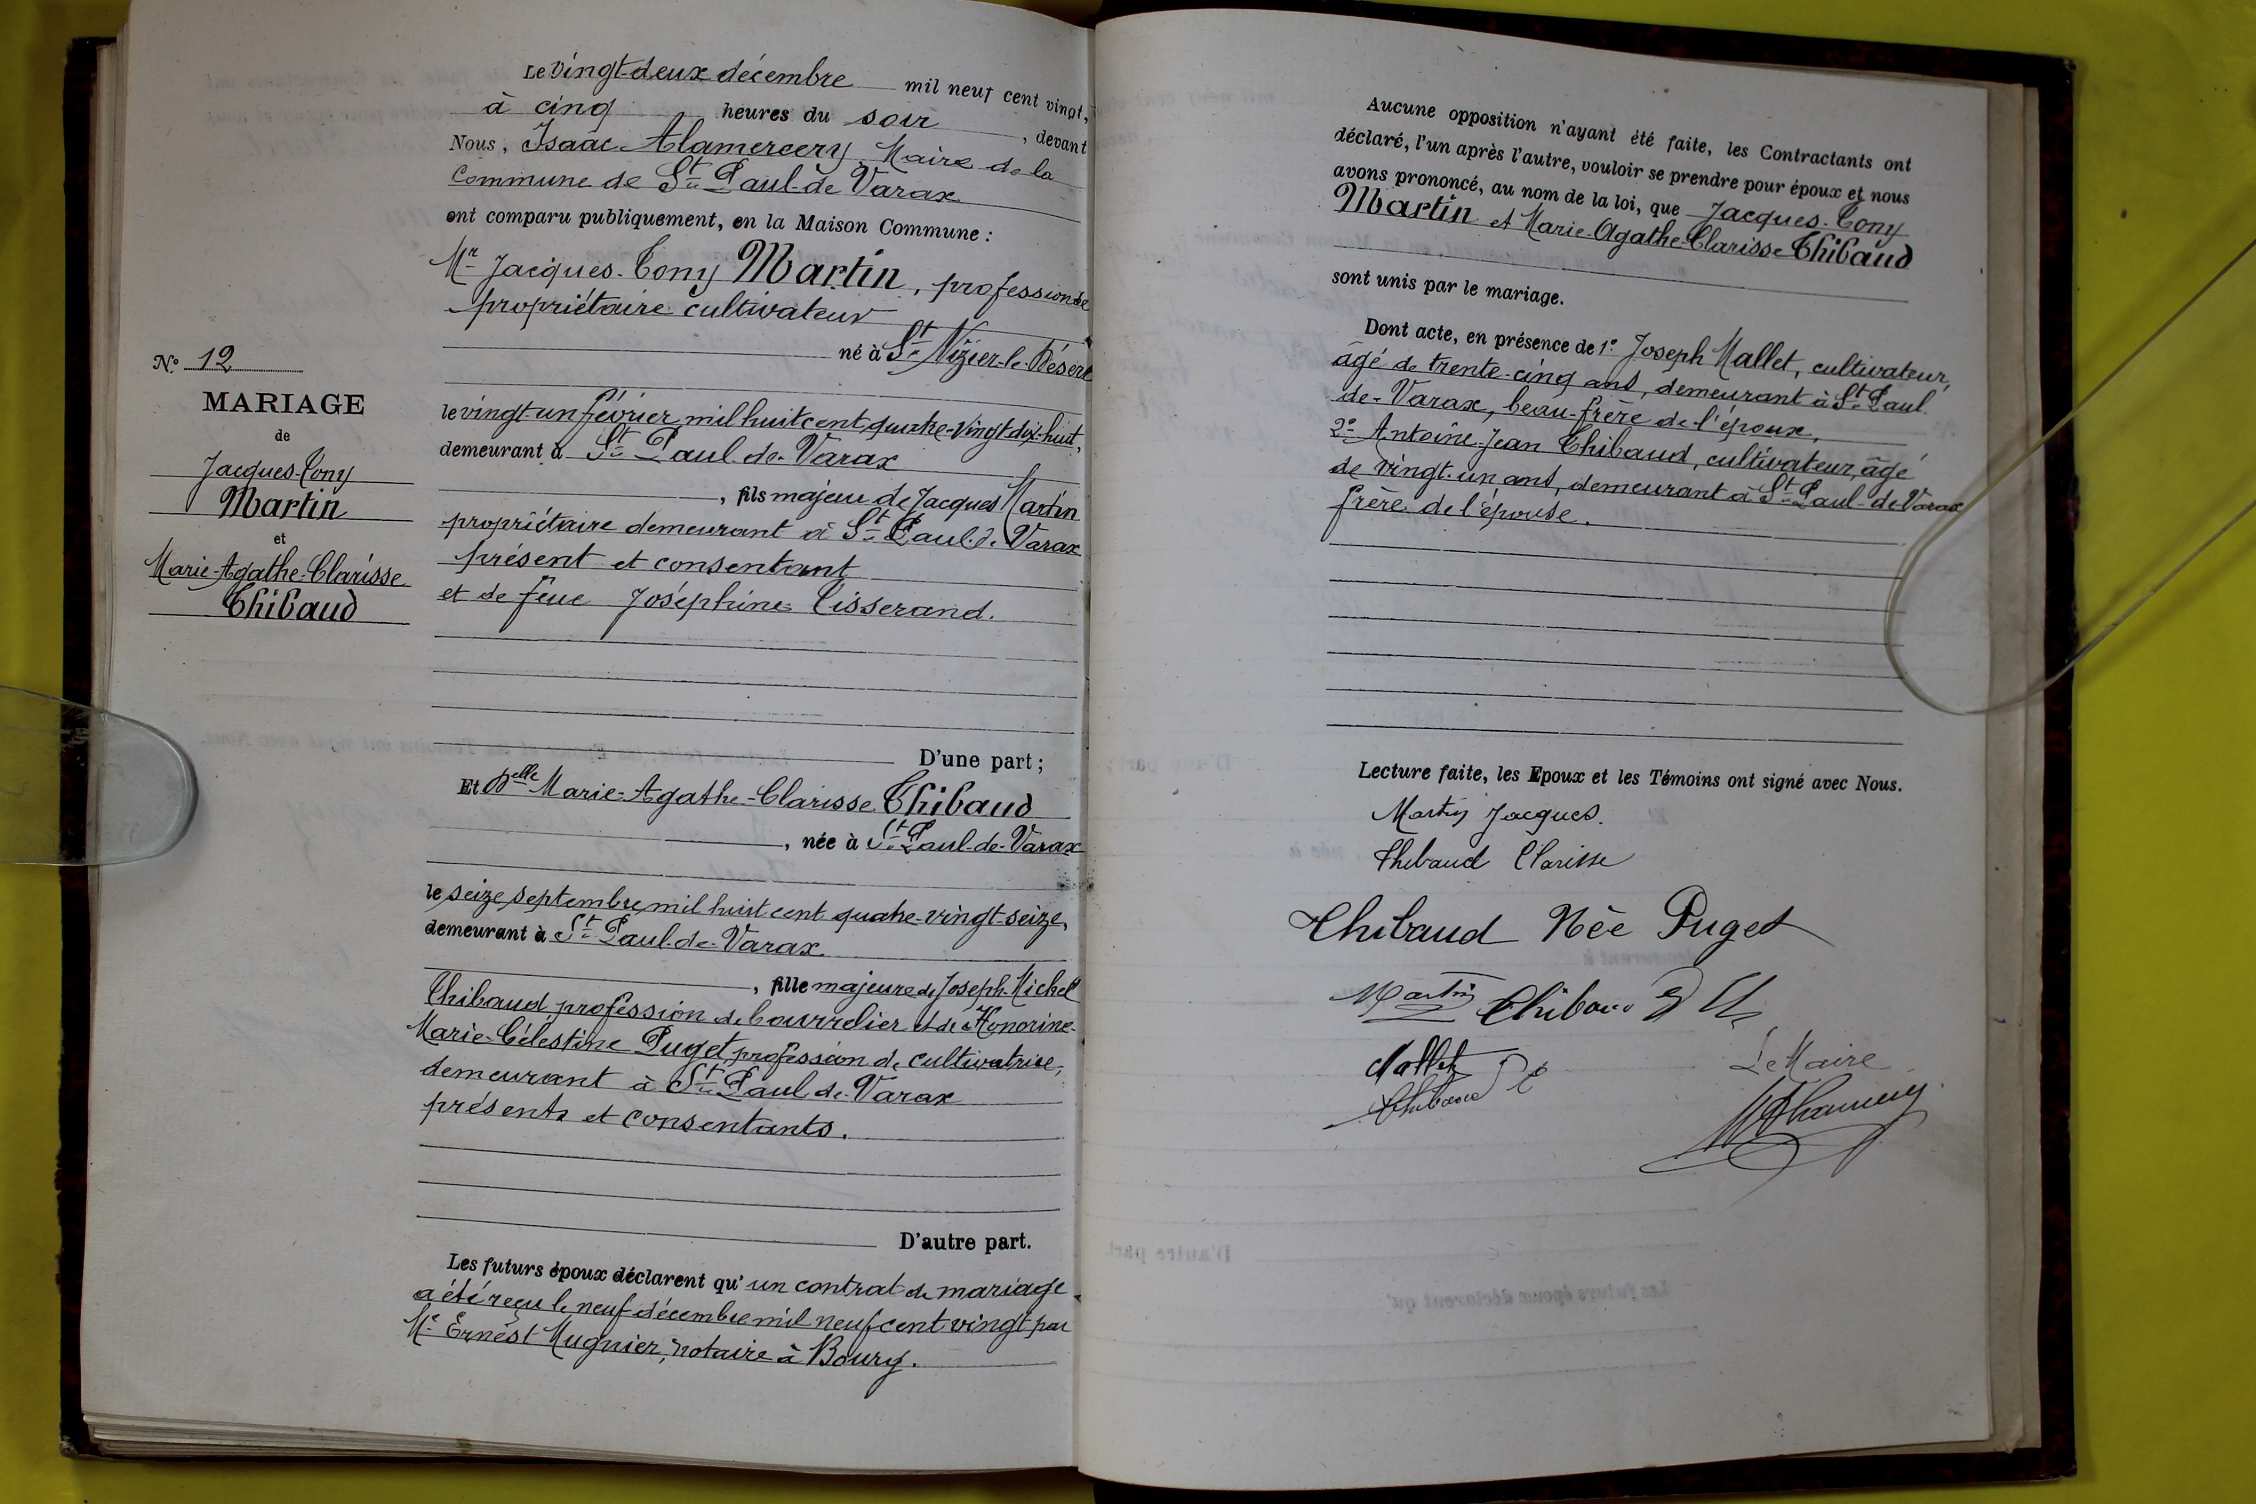 Le vingt-deux décembre mil neuf cent vingt,
à cinq heures du soir, devant
Nous, Isaac Alamercery, Maire de la
Commune de St Paul-de-Varax
ont comparu publiquement, en la Maison Commune :
Mr Jacques-Tony Martin, profession de
propriétaire cultivateur
né à St Nizier-le-Désert
N° 12
MARIAGE
de
Jacques-Tony
Martin
et
Marie-Agathe-Clarisse
Thibaud
le vingt-un février mil huit cent quatre-vingt-dix-huit,
demeurant à St Paul-de-Varax
, fils majeur de Jacques Martin
propriétaire demeurant à St Paul-de-Varax
présent et consentant
et de feue Joséphine Tisserand.
D'une part ;
Et Delle Marie-Agathe-Clarisse Thibaud
, née à St Paul-de-Varax
le seize septembre mil huit cent quatre-vingt-seize,
demeurant à St Paul-de-Varax.
, fille majeure de Joseph-Michel
Thibaud, profession de bourrelier et de Honorine-
Marie-Célestine Puget, profession de cultivatrice,
demeurant à St Paul de-Varax
présents et consentants.
D'autre part.
Les futurs époux déclarent qu'un contrat de mariage
a été reçu le neuf décembre mil neuf cent vingt par
Me Ernest Mugnier, notaire à Bourg.
Aucune opposition n'ayant été faite, les Contractants ont
déclaré, l'un après l'autre, vouloir se prendre pour époux et nous
avons prononcé, au nom de la loi, que Jacques-Tony
Martin et Marie-Agathe-Clarisse Thibaud
sont unis par le mariage.
Dont acte, en présence de 1° Joseph Mallet, cultivateur,
âgé de trente-cinq ans, demeurant à St Paul-
de-Varax, beau-frère de l'époux,
2° Antoine-Jean Thibaud, cultivateur, âgé
de vingt-un ans, demeurant à St Paul-de-Varax
frère de l'épouse.
Lecture faite, les Epoux et les Témoins ont signé avec Nous.
Martin Jacques.
Thibaud Clarisse
Thibaud Née Puget
Martin Thibaud
Mallet
Le Maire
Thibaud